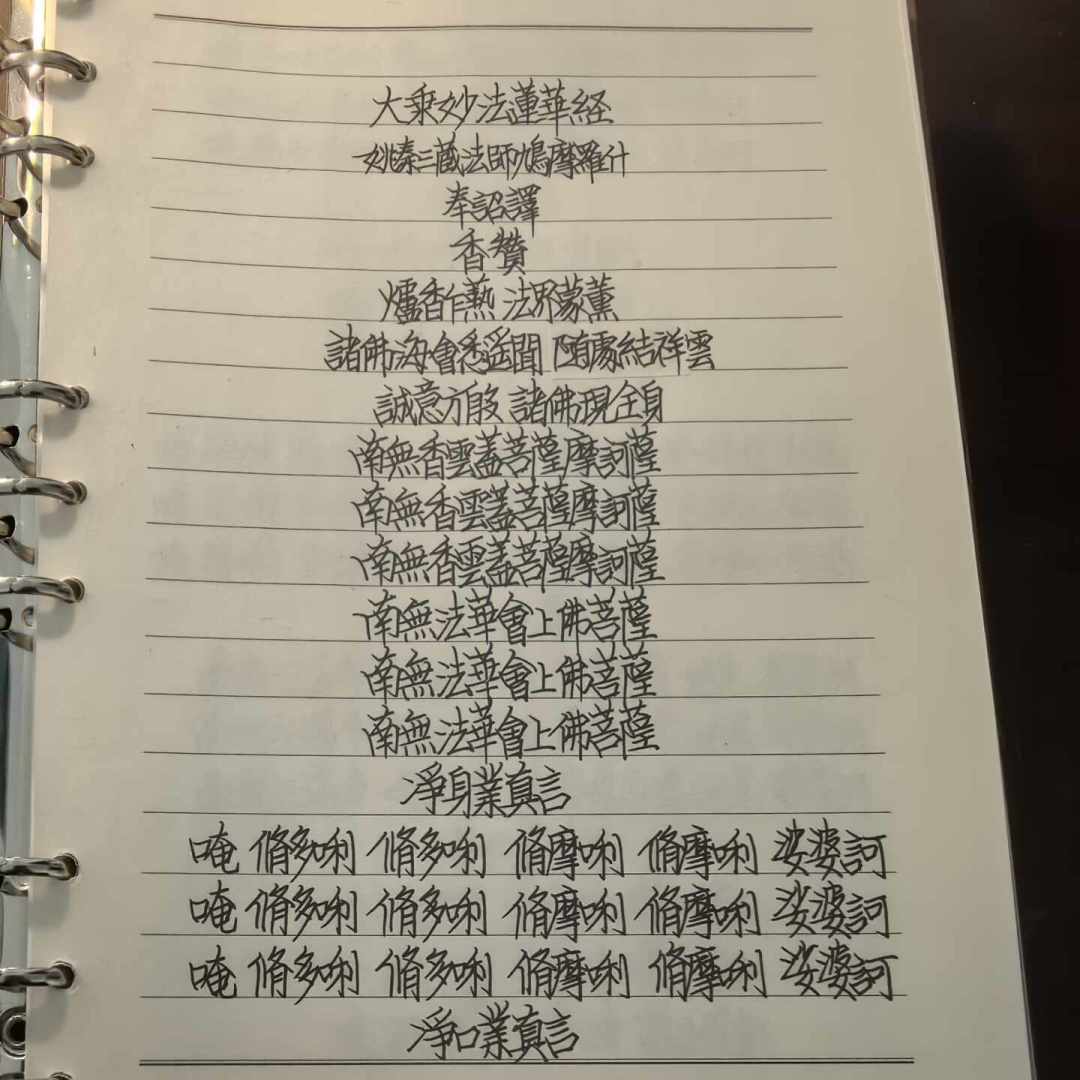 大乘妙法蓮華経
姚秦三藏法師鳩摩羅什
奉詔譯
香贊
爐香乍爇 法界蒙薰
諸佛海會悉遥聞 随處結祥雲
誠意方殷 諸佛現全身
南無香雲蓋菩薩摩訶薩
南無香雲蓋菩薩摩訶薩
南無香雲蓋菩薩摩訶薩
南無法華會上佛菩薩
南無法華會上佛菩薩
南無法華會上佛菩薩
淨身業真言
唵 脩多唎 脩多唎 脩摩唎 脩摩唎 娑婆訶
唵 脩多唎 脩多唎 脩摩唎 脩摩唎 娑婆訶
唵 脩多唎 脩多唎 脩摩唎 脩摩唎 娑婆訶
淨口業真言